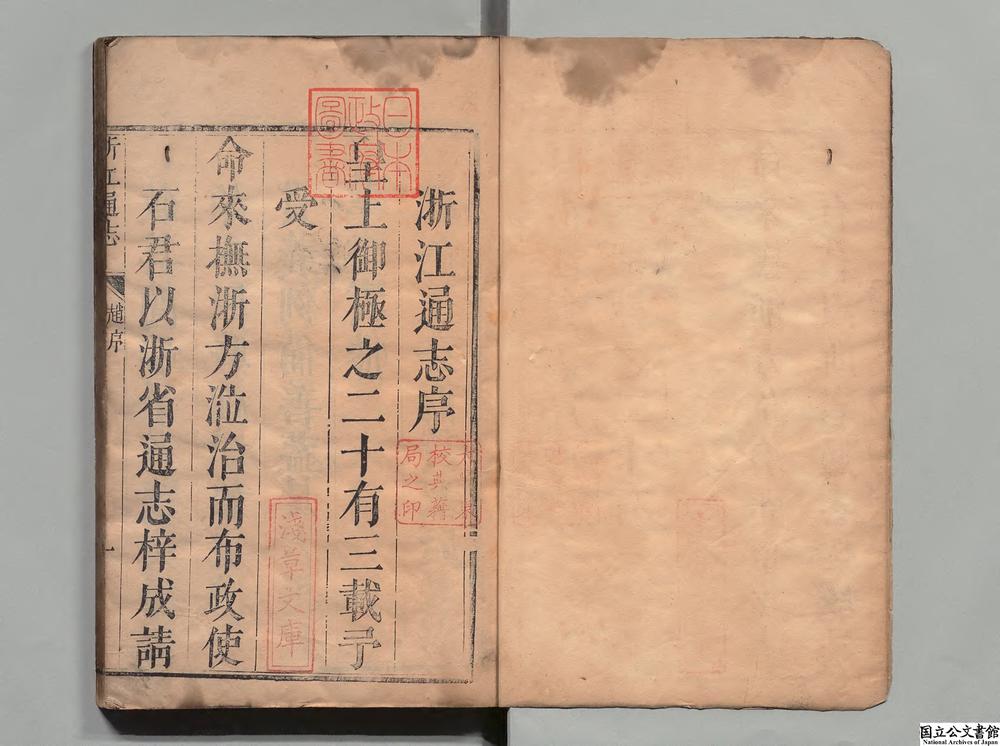 浙江通志序
皇上御極之二十有三載予
受
命來撫浙方涖治而布政使
石君以浙省通志梓成請
浙江通志
趙序
一
日本
政府
圖書
校典籍
局之印
淺草文庫
国立公文書館
National Archives of Japan